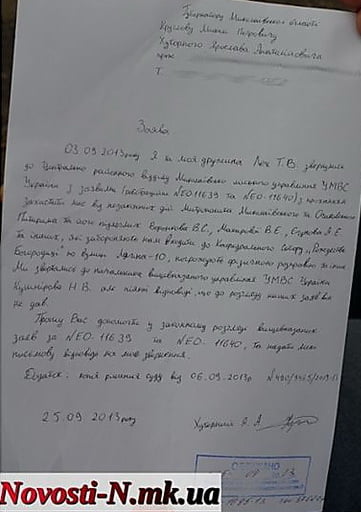 Губернатору Миколаївської області
Круглову Миколі Петровичу
Хуторного Ярослава Анатолійовича
Т.
Заява
03.09.2013 року Я та моя дружина Т.В. звернулися
до Центрально районного відділу Миколаївського міського управління УМВС
України з заявами (реєстраційні №ЕО 11639 та №ЕО-11640) з проханням
захистити нас від незаконних дій Митрополита Миколаївського та Очаківського
Питирима та його підлеглих В.С., В.Е., А.Е.
та інших, які забороняють нам входити до Кафедрального Собору „Рождества
Богородиці" по вулиці -10, погрожують фізичною розправою та інше
Ми зверталися до начальника вищевказаного управління УМВС України
Кушнірова Н.В. але ніякої відповіді, що до розгляду наших заяв він
не дав.
Прошу Вас допомогти у законному розгляді вищевказаних
заяв за №ЕО-11639 та №ЕО-11640, та надати мені
письмову відповідь на моє звернення.
Додаток: копія рішення суду від 06.09.2013р
25.09 2013 року Хуторний Я. А.
Novosti-N.mk.ua